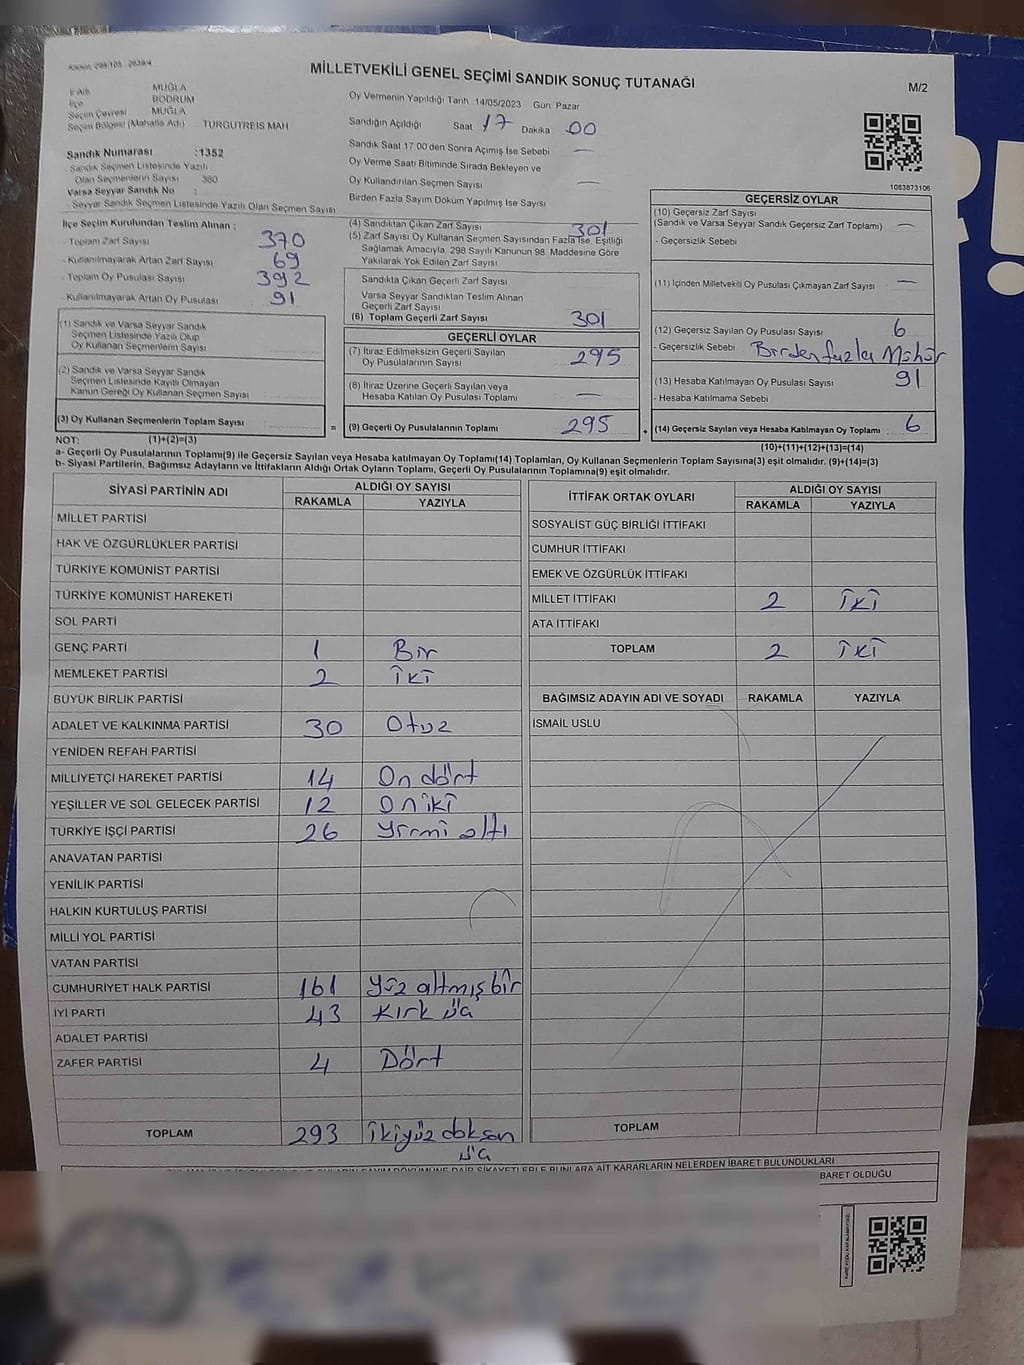 MİLLETVEKİLİ GENEL SEÇİMİ SANDIK SONUÇ TUTANAĞI
M/2
İl Adı MUĞLA
İlçe BODRUM
Seçim Çevresi MUĞLA
Seçim Bölgesi (Mahalle Adı) TURGUTREİS MAH
Sandık Numarası :1352
Sandık Seçmen Listesinde Yazılı
Olan Seçmenlerin Sayısı 360
Varsa Seyyar Sandık No :
Seyyar Sandık Seçmen Listesinde Yazılı Olan Seçmen Sayısı
Oy Vermenin Yapıldığı Tarih 14/05/2023 Gün: Pazar
Sandığın Açıldığı Saat 17 Dakika 00
Sandık Saat 17 00'den Sonra Açımış İse Sebebi —
Oy Verme Saati Bitiminde Sırada Bekleyen ve
Oy Kullandırılan Seçmen Sayısı —
Birden Fazla Sayım Döküm Yapılmış İse Sayısı
1083873106
İlçe Seçim Kurulundan Teslim Alınan :
- Toplam Zarf Sayısı 370
- Kullanılmayarak Artan Zarf Sayısı 69
- Toplam Oy Pusulası Sayısı 392
- Kullanılmayarak Artan Oy Pusulası 91
(1) Sandık ve Varsa Seyyar Sandık
Seçmen Listesinde Yazılı Olup
Oy Kullanan Seçmenlerin Sayısı
(2) Sandık ve Varsa Seyyar Sandık
Seçmen Listesinde Kayıtlı Olmayan
Kanun Gereği Oy Kullanan Seçmen Sayısı
(3) Oy Kullanan Seçmenlerin Toplam Sayısı
(1)+(2)=(3)
(4) Sandıktan Çıkan Zarf Sayısı 301
(5) Zarf Sayısı Oy Kullanan Seçmen Sayısından Fazla İse, Eşitliği
Sağlamak Amacıyla, 298 Sayılı Kanunun 98. Maddesine Göre
Yakılarak Yok Edilen Zarf Sayısı
Sandıkta Çıkan Geçerli Zarf Sayısı
Varsa Seyyar Sandıktan Teslim Alınan
Geçerli Zarf Sayısı
(6) Toplam Geçerli Zarf Sayısı 301
GEÇERLİ OYLAR
(7) İtiraz Edilmeksizin Geçerli Sayılan
Oy Pusulalarının Sayısı 295
(8) İtiraz Üzerine Geçerli Sayılan veya
Hesaba Katılan Oy Pusulası Toplamı —
= (9) Geçerli Oy Pusulalarının Toplamı 295
GEÇERSİZ OYLAR
(10) Geçersiz Zarf Sayısı
(Sandık ve Varsa Seyyar Sandık Geçersiz Zarf Toplamı) —
- Geçersizlik Sebebi
(11) İçinden Milletvekili Oy Pusulası Çıkmayan Zarf Sayısı —
(12) Geçersiz Sayılan Oy Pusulası Sayısı 6
- Geçersizlik Sebebi Birden fazla Mühür
(13) Hesaba Katılmayan Oy Pusulası Sayısı 91
- Hesaba Katılmama Sebebi
+ (14) Geçersiz Sayılan veya Hesaba Katılmayan Oy Toplamı 6
(10)+(11)+(12)+(13)=(14)
NOT:
a- Geçerli Oy Pusulalarının Toplamı(9) ile Geçersiz Sayılan veya Hesaba katılmayan Oy Toplamı(14) Toplamları, Oy Kullanan Seçmenlerin Toplam Sayısına(3) eşit olmalıdır. (9)+(14)=(3)
b- Siyasi Partilerin, Bağımsız Adayların ve İttifakların Aldığı Ortak Oyların Toplamı, Geçerli Oy Pusulalarının Toplamına(9) eşit olmalıdır.
SİYASİ PARTİNİN ADI ALDIĞI OY SAYISI
RAKAMLA YAZIYLA
MİLLET PARTİSİ
HAK VE ÖZGÜRLÜKLER PARTİSİ
TÜRKİYE KOMÜNİST PARTİSİ
TÜRKİYE KOMÜNİST HAREKETİ
SOL PARTİ
GENÇ PARTİ 1 Bir
MEMLEKET PARTİSİ 2 İki
BÜYÜK BİRLİK PARTİSİ
ADALET VE KALKINMA PARTİSİ 30 Otuz
YENİDEN REFAH PARTİSİ
MİLLİYETÇİ HAREKET PARTİSİ 14 On dört
YEŞİLLER VE SOL GELECEK PARTİSİ 12 On iki
TÜRKİYE İŞÇİ PARTİSİ 26 Yirmi altı
ANAVATAN PARTİSİ
YENİLİK PARTİSİ
HALKIN KURTULUŞ PARTİSİ
MİLLİ YOL PARTİSİ
VATAN PARTİSİ
CUMHURİYET HALK PARTİSİ 161 Yüz altmış bir
İYİ PARTİ 43 Kırk üç
ADALET PARTİSİ
ZAFER PARTİSİ 4 Dört
TOPLAM 293 İkiyüz doksan
üç
İTTİFAK ORTAK OYLARI ALDIĞI OY SAYISI
RAKAMLA YAZIYLA
SOSYALİST GÜÇ BİRLİĞİ İTTİFAKI
CUMHUR İTTİFAKI
EMEK VE ÖZGÜRLÜK İTTİFAKI
MİLLET İTTİFAKI 2 İki
ATA İTTİFAKI
TOPLAM 2 İki
BAĞIMSIZ ADAYIN ADI VE SOYADI RAKAMLA YAZIYLA
İSMAİL USLU
TOPLAM
KARARLARIN NELERDEN İBARET BULUNDUKLARI
BARET OLDUĞU